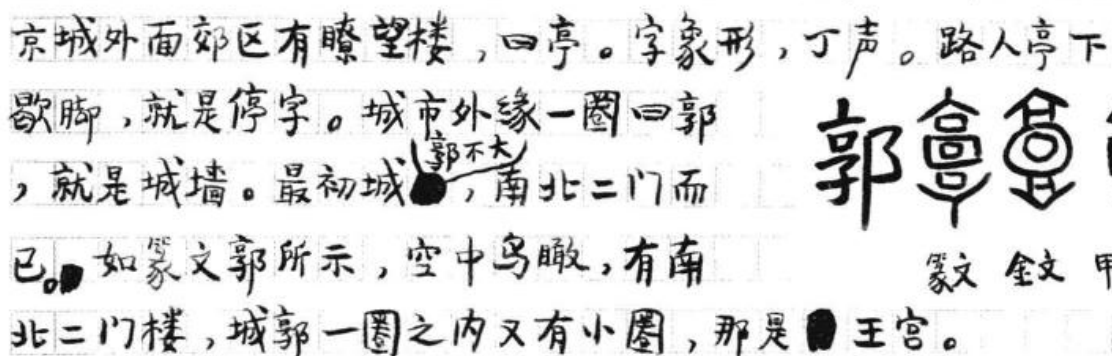 京城外面郊区有瞭望楼，曰亭。字象形，丁声。路人亭下
歇脚，就是停字。城市外缘一圈曰郭
，就是城墙。最初城郭不大，南北二门而
已。如篆文郭所示，空中鸟瞰，有南
北二门楼，城郭一圈之内又有小圈，那是王宫。
郭
篆文 金文 甲